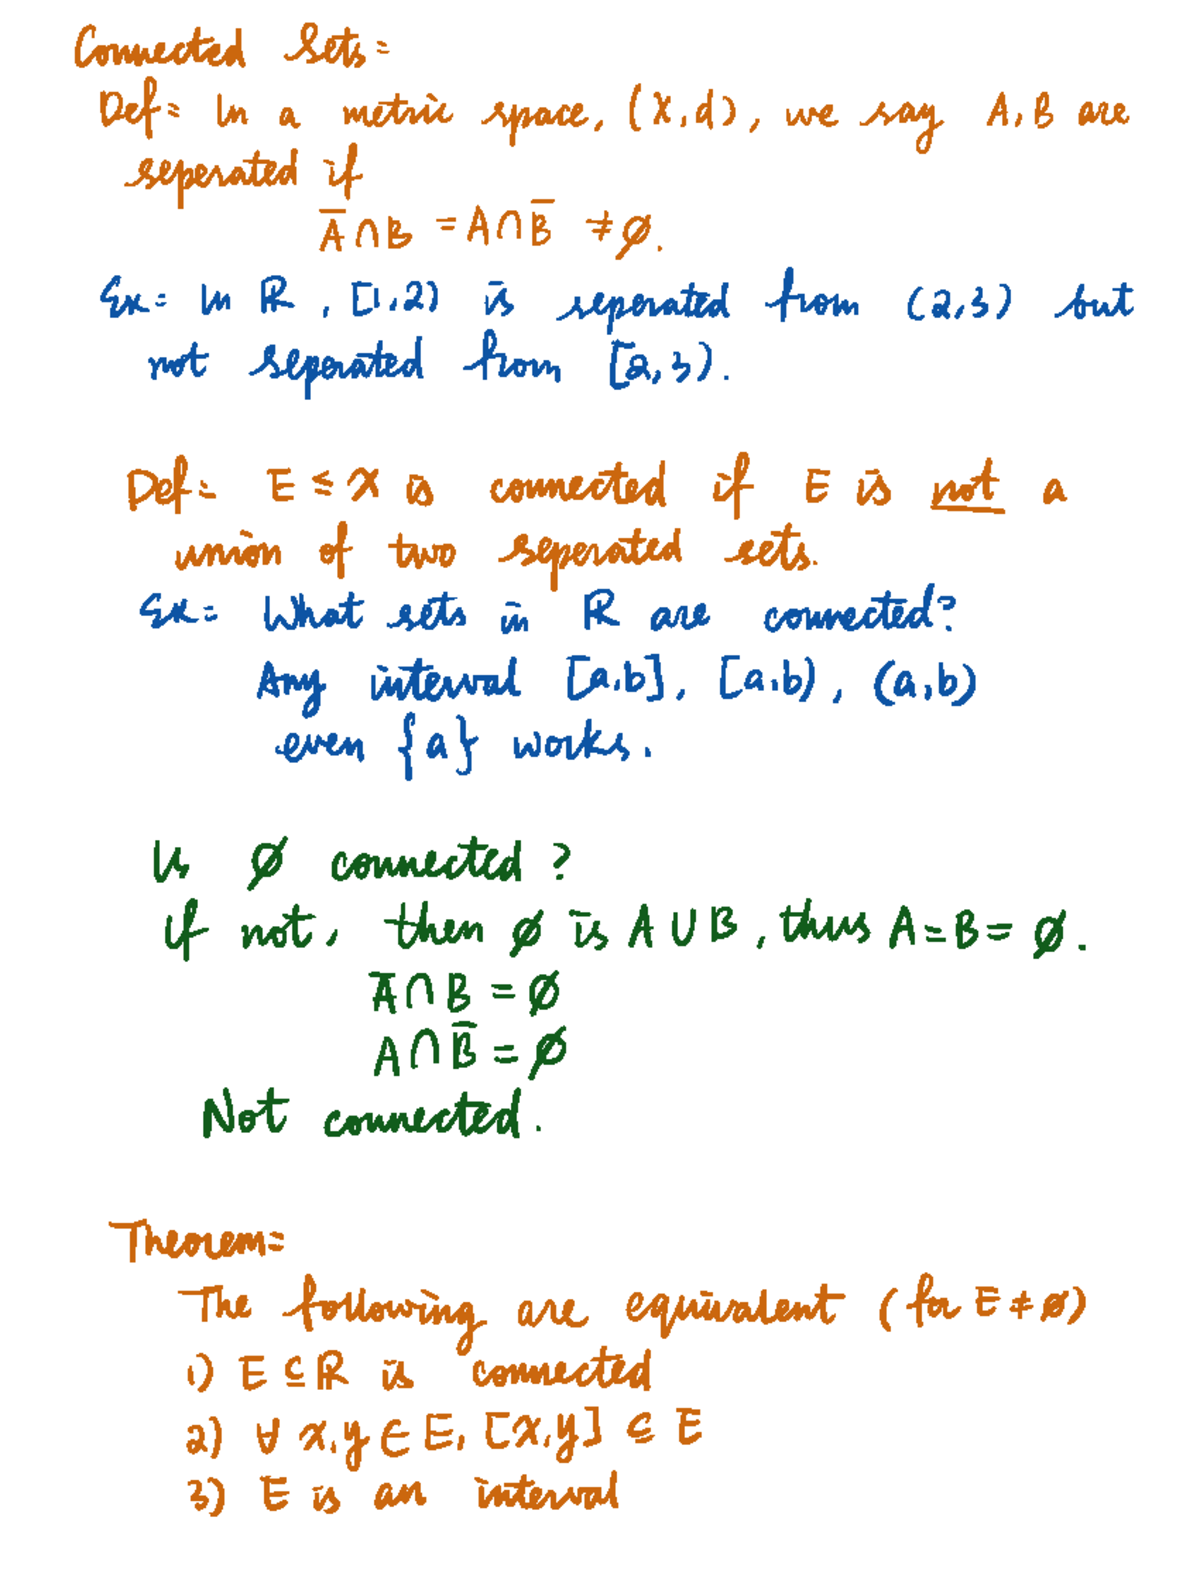 Connected Sets =
Def = In a metric space, (X,d), we say A, B are
seperated if
A̅ ∩ B = A ∩ B̅ ≠ ∅.
Ex = In ℝ, [1,2) is seperated from (2,3) but
not seperated from [2,3).
Def = E ≤ X is connected if E is not a
union of two seperated sets.
Ex = What sets in ℝ are connected?
Any interval [a,b], [a,b), (a,b)
even {a} works.
Is ∅ connected?
If not, then ∅ is A ∪ B, thus A = B = ∅.
A̅ ∩ B = ∅
A ∩ B̅ = ∅
Not connected.
Theorem =
The following are equivalent (for E ≠ ∅)
1) E ⊆ ℝ is connected
2) ∀ x,y ∈ E, [x,y] ⊆ E
3) E is an interval